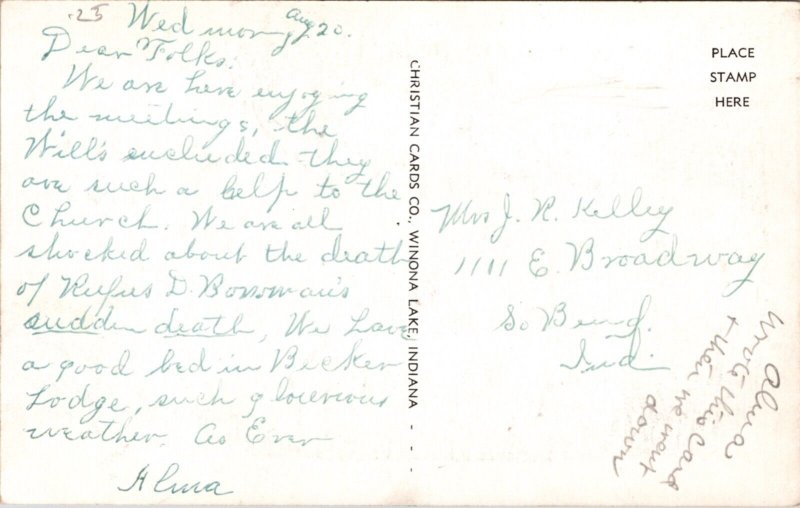 .25
Wed morn Aug 20.
Dear Folks:
We are here enjoying
the meetings, the
Will's encluded they
are such a help to the
Church. We are all
shocked about the death
of Rufus D. Bowman's
sudden death, We have
a good bed in Becker
Lodge, such glourious
weather. As Ever
Alma
CHRISTIAN CARDS CO., WINONA LAKE, INDIANA - - -
PLACE
STAMP
HERE
Mrs J. R. Kelley
1111 E. Broadway
So Bend.
Ind.
Alma
wrote this card
+ then we went
down